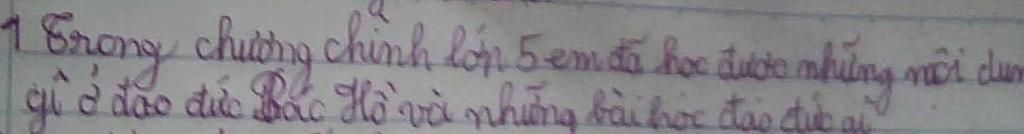 1 Trong chương chình lớp 5 em đã học được những nôi dun
gì ở đạo đức Bác Hồ và những bài học đạo đức gì